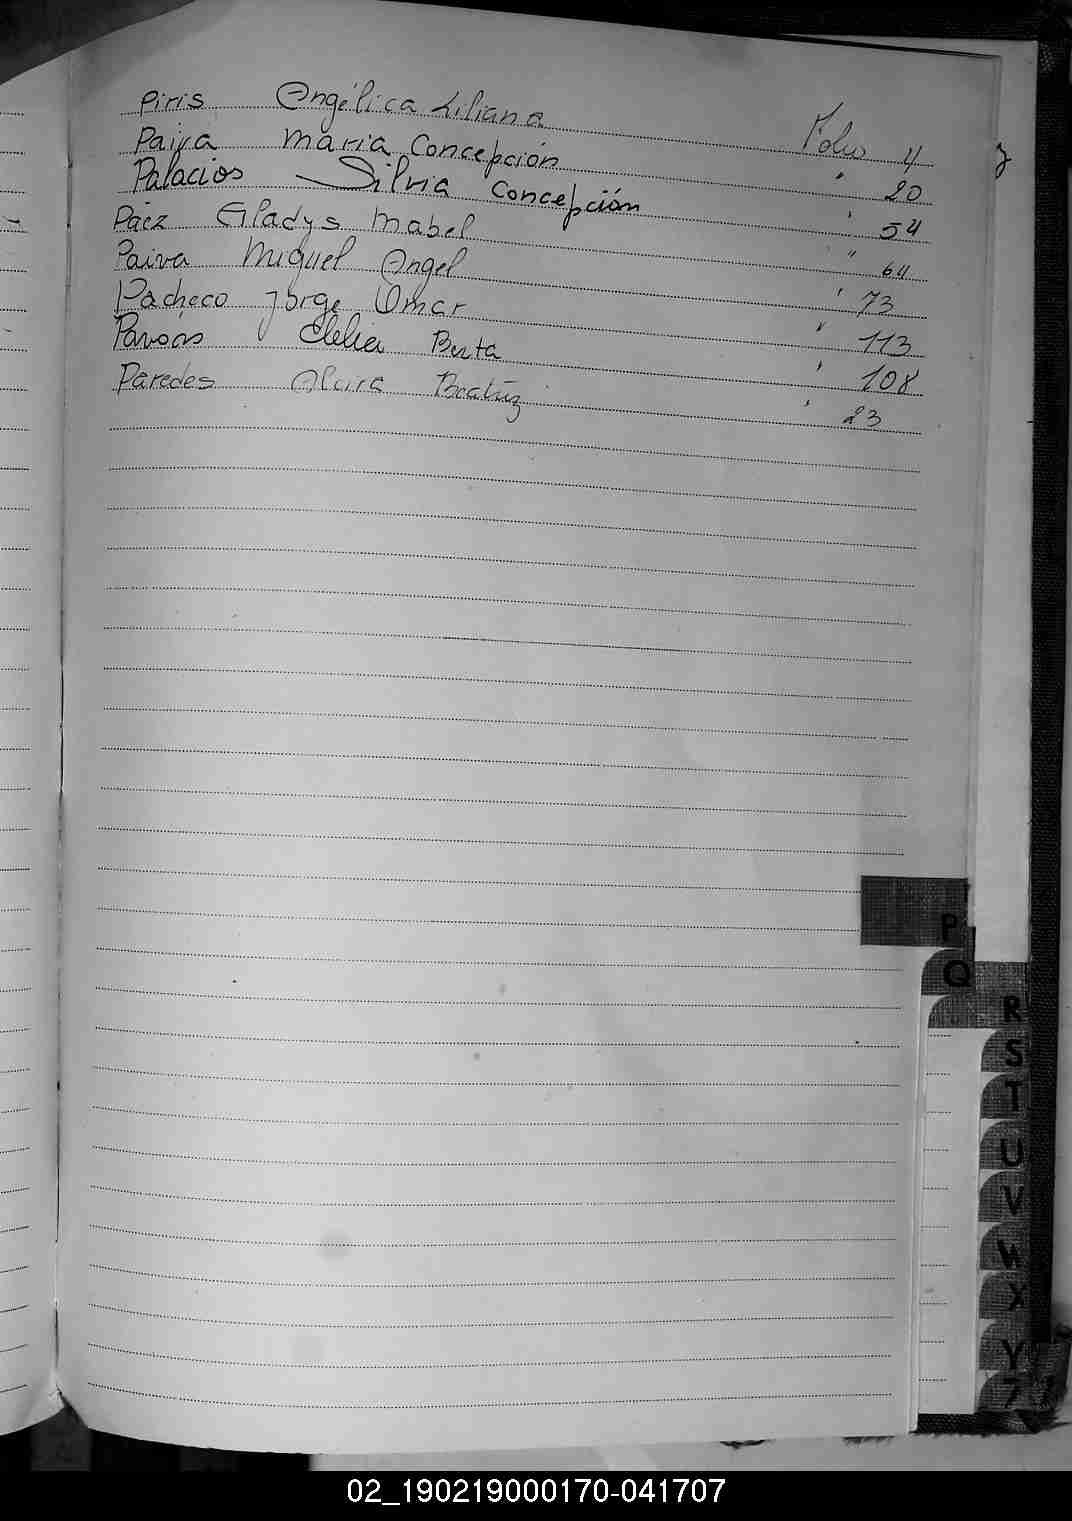 Piris Angélica Liliana Folio 4
Paiva Maria Concepción " 20
Palacios Silvia Concepción " 54
Páez Gladys Mabel " 64
Paiva Miguel Angel " 73
Pacheco Jorge Omar " 113
Clelia Berta " 108
Paredes Alcira Beatriz " 23
P
Q
R
S
T
U
V
W
X
Y
Z
02_190219000170-041707